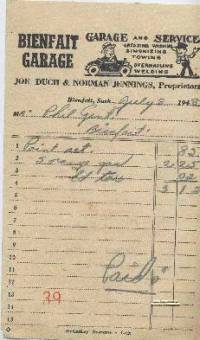 BIENFAIT GARAGE
GARAGE AND SERVICE
GREASING WASHING
SIMONIZING
TOWING
OVERHAULING
WELDING
JOE DUCH & NORMAN JENNINGS, Proprietors
Bienfait, Sask., July 2 194
M Phil
Bienfait
1 Point set. 85
2 5 gas 2 25
3 tax 02
4 3 12
5
6
7
8
9
10
11
12
13
14
15
Paid
39